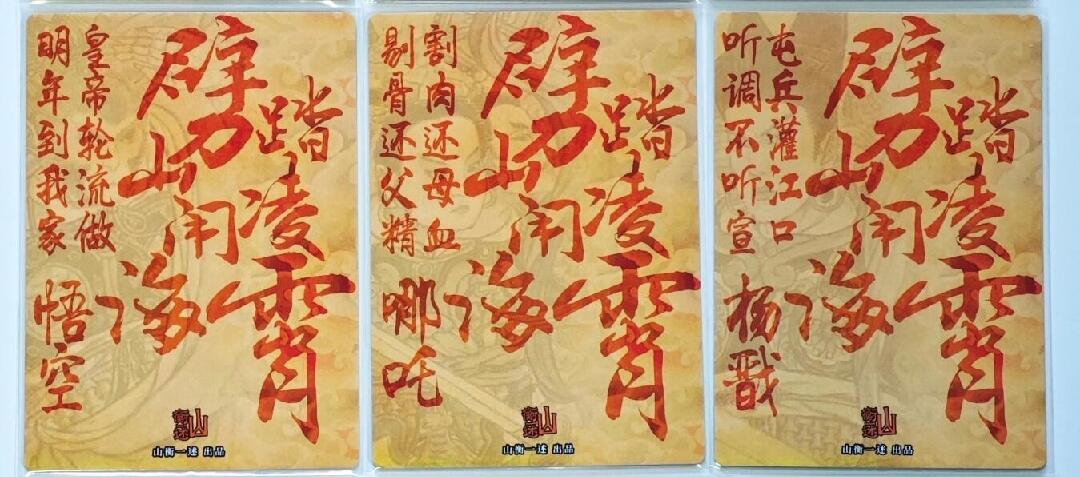 劈山闹海
踏凌霄
皇帝轮流做
明年到我家
悟空
山衡一述 出品
劈山闹海
踏凌霄
割肉还母血
剔骨还父精
哪吒
山衡一述 出品
劈山闹海
踏凌霄
屯兵灌江口
听调不听宣
杨戬
山衡一述 出品